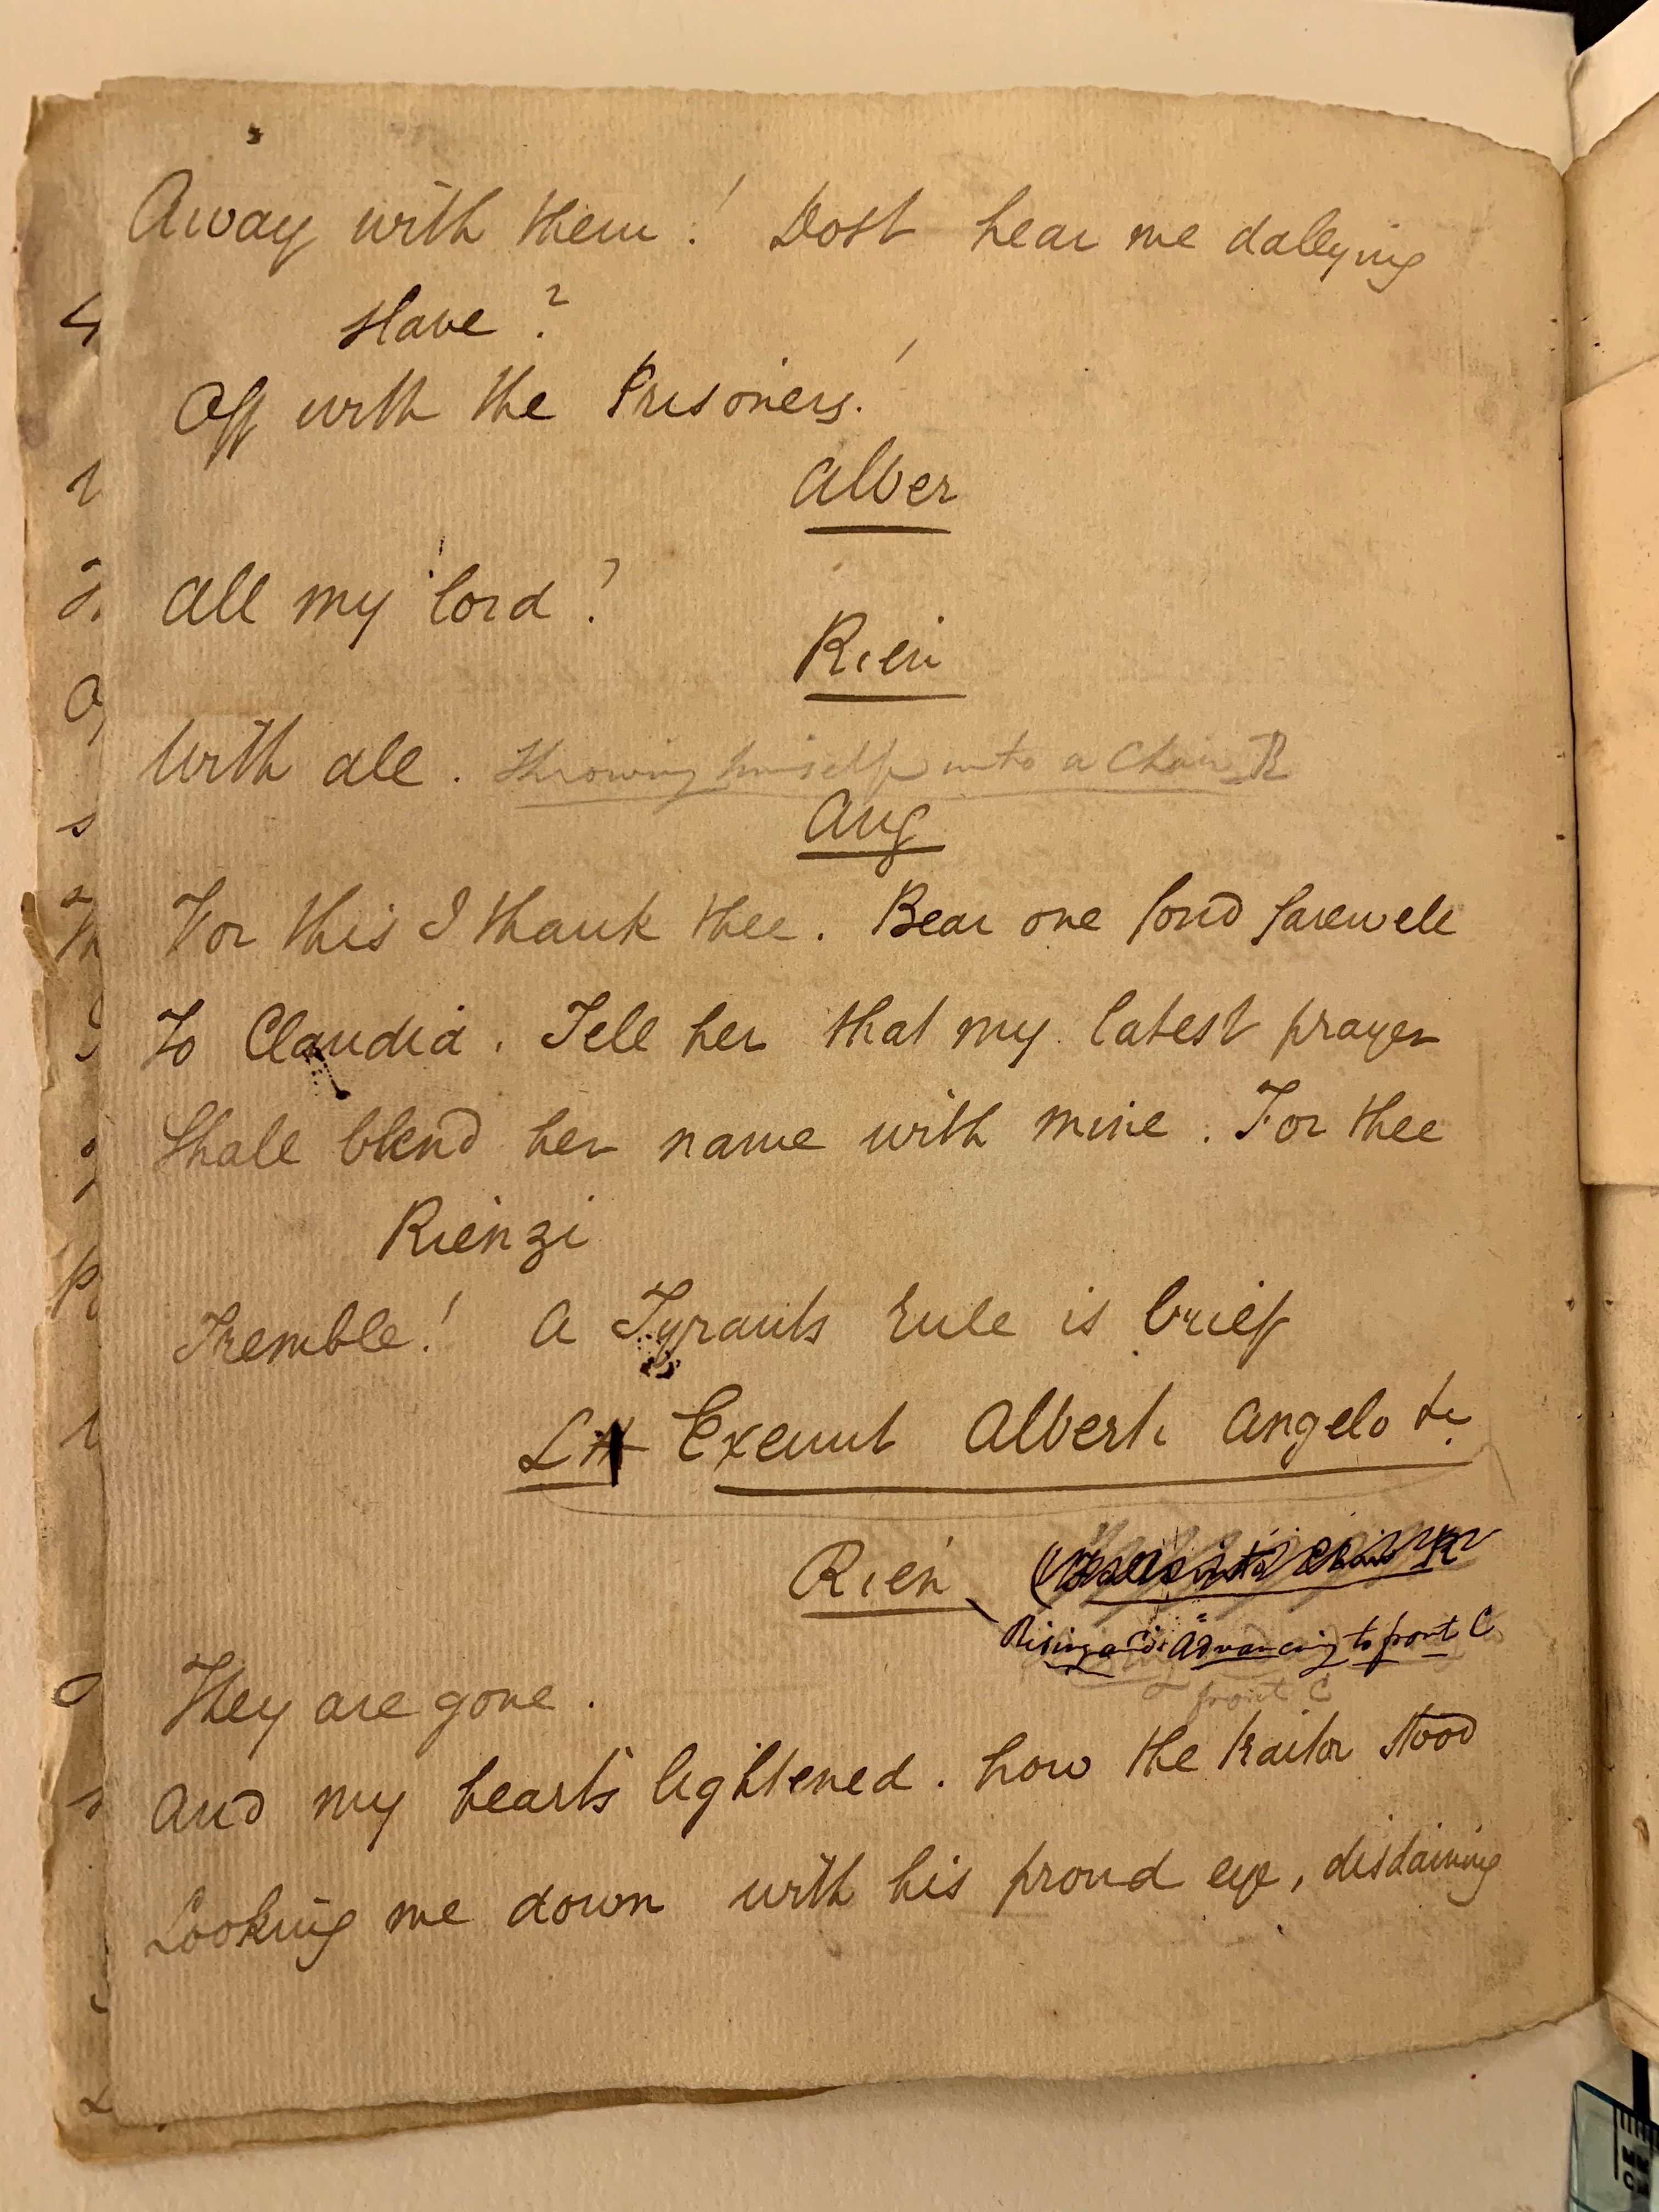 Away with them! Dost hear me dallying
slave?
Off with the Prisoners!
Alber
All my lord?
Rien
With all. Throwing himself into a Chair R
Ang
For this I thank thee. Bear one fond farewell
To Claudia. Tell her that my latest prayer
Shall blend her name with mine. For thee
Rienzi
Tremble! A Tyrants rule is brief
L Exeunt Alberti Angelo &c
Rien
Rising and Advancing to front C
front C
They are gone.
And my hearts lightened. how the traitor stood
Looking me down with his proud eye, disdaining